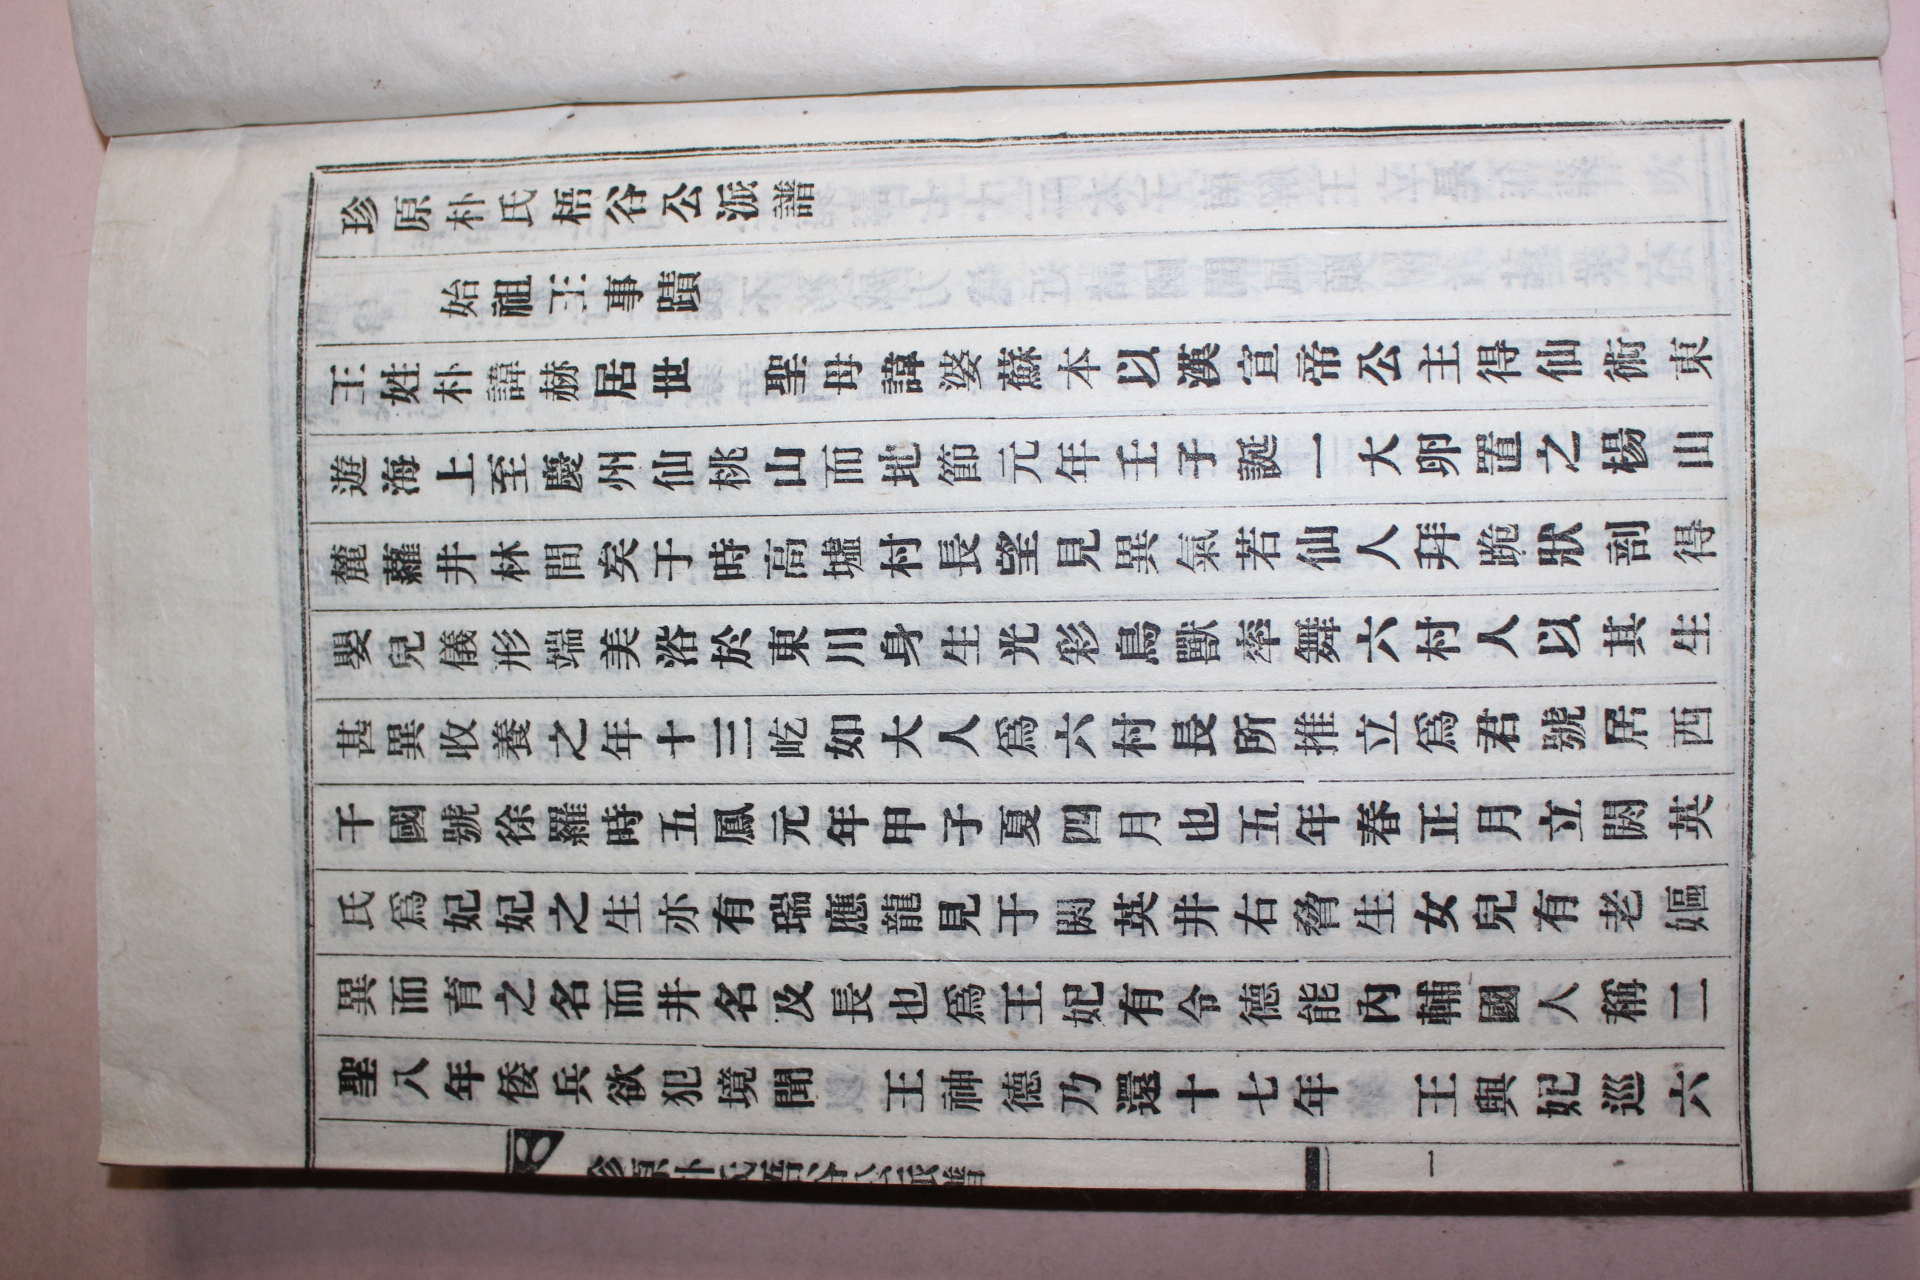 珍原朴氏梧谷公派譜
始祖王事蹟
王姓朴諱赫居世 聖母諱婆蘇本以漢宣帝公主得仙術東
遊海上至慶州仙桃山而地節元年壬子誕一大卵置之楊山
麓蘿井林間矣于時高墟村長望見異氣若仙人拜跪狀剖得
嬰兒儀形端美浴於東川身生光彩鳥獸率舞六村人以其生
甚異收養之年十三屹如大人爲六村長所推立爲君號居西
干國號徐羅時五鳳元年甲子夏四月也五年春正月立閼英
氏爲妃妃之生亦有瑞應龍見于閼英井右脅生女兒有老嫗
異而育之名而井名及長也爲王妃有令德能內輔國人稱二
聖八年倭兵欲犯境聞 王神德乃還十七年 王與妃巡六
珍原朴氏梧谷公派譜 一